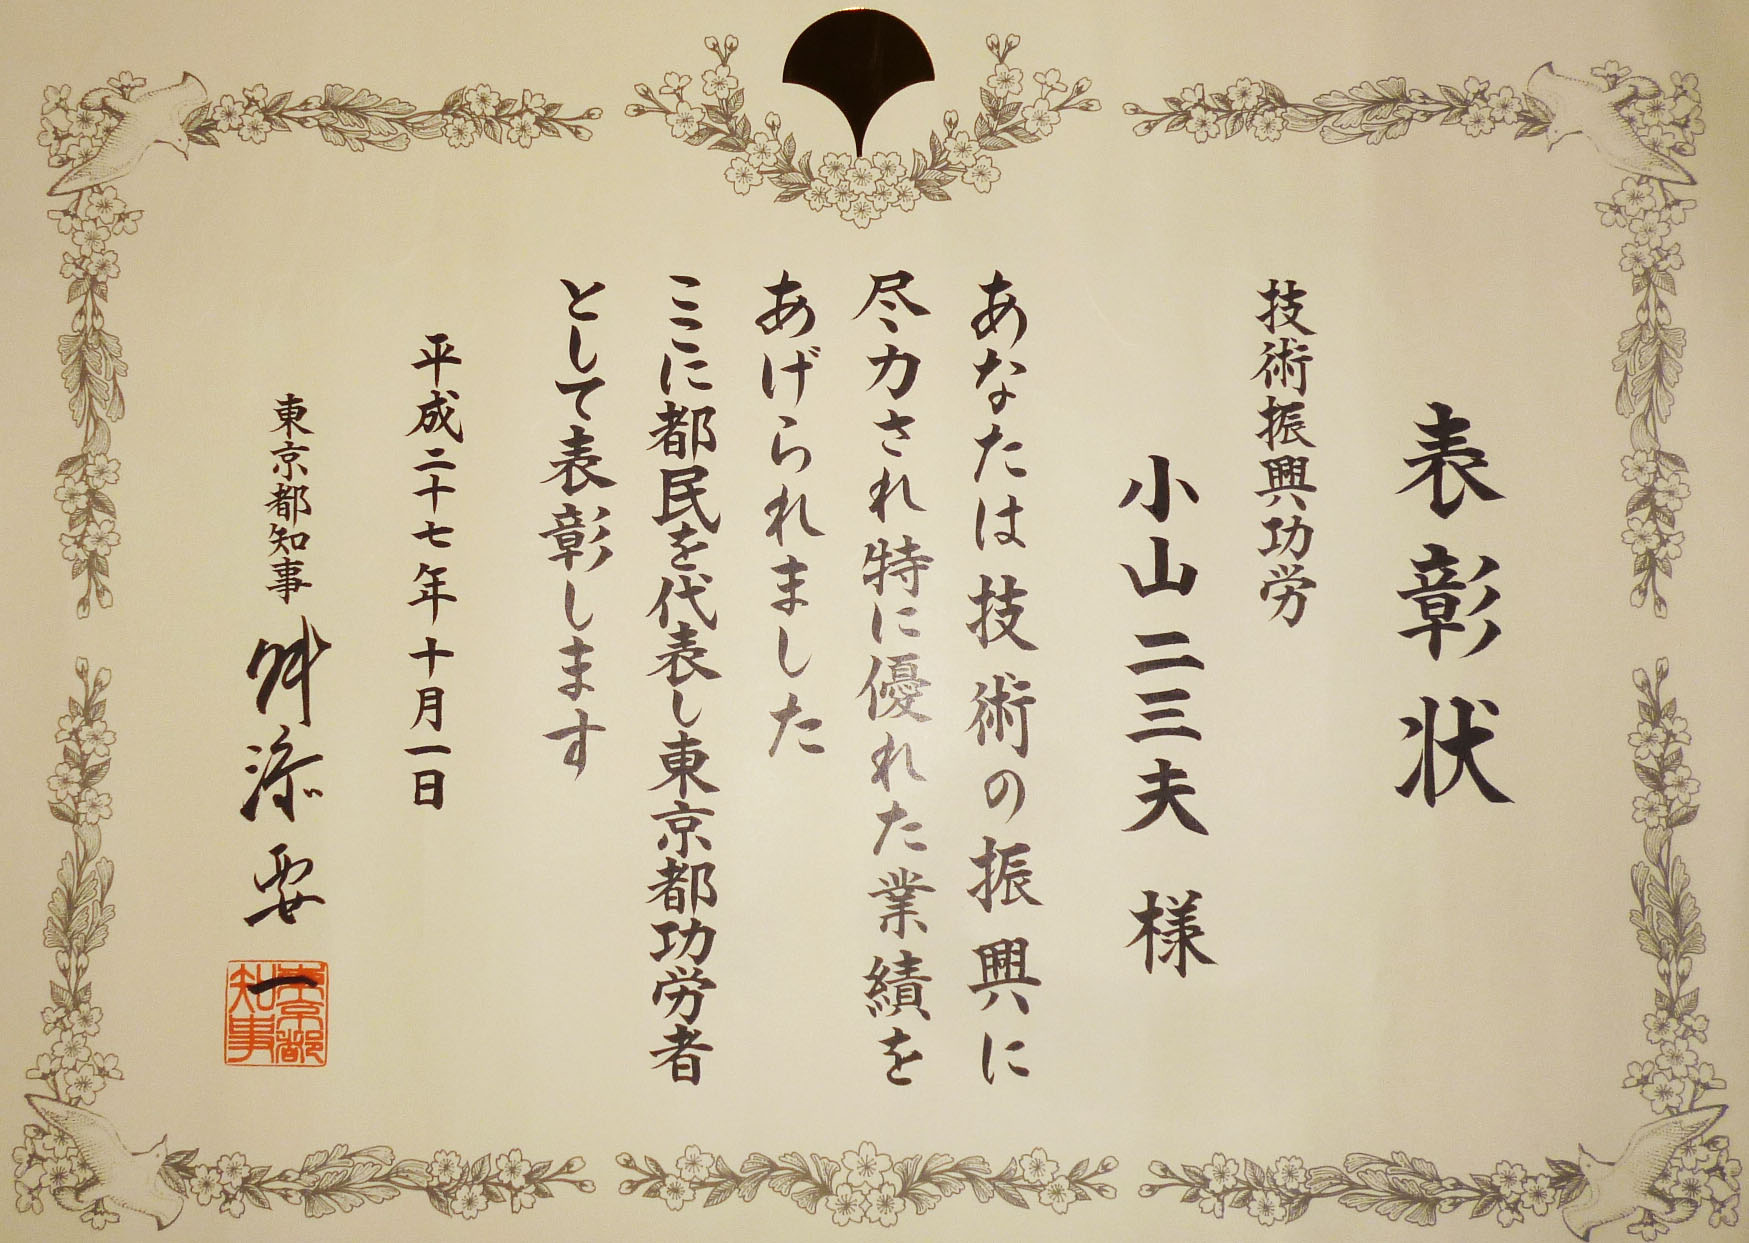 表彰状
技術振興功労
小山二三夫 様
あなたは技術の振興に
尽力され特に優れた業績を
あげられました
ここに都民を代表し東京都功労者
として表彰します
平成二十七年十月一日
東京都知事 舛添要一
東京都知事